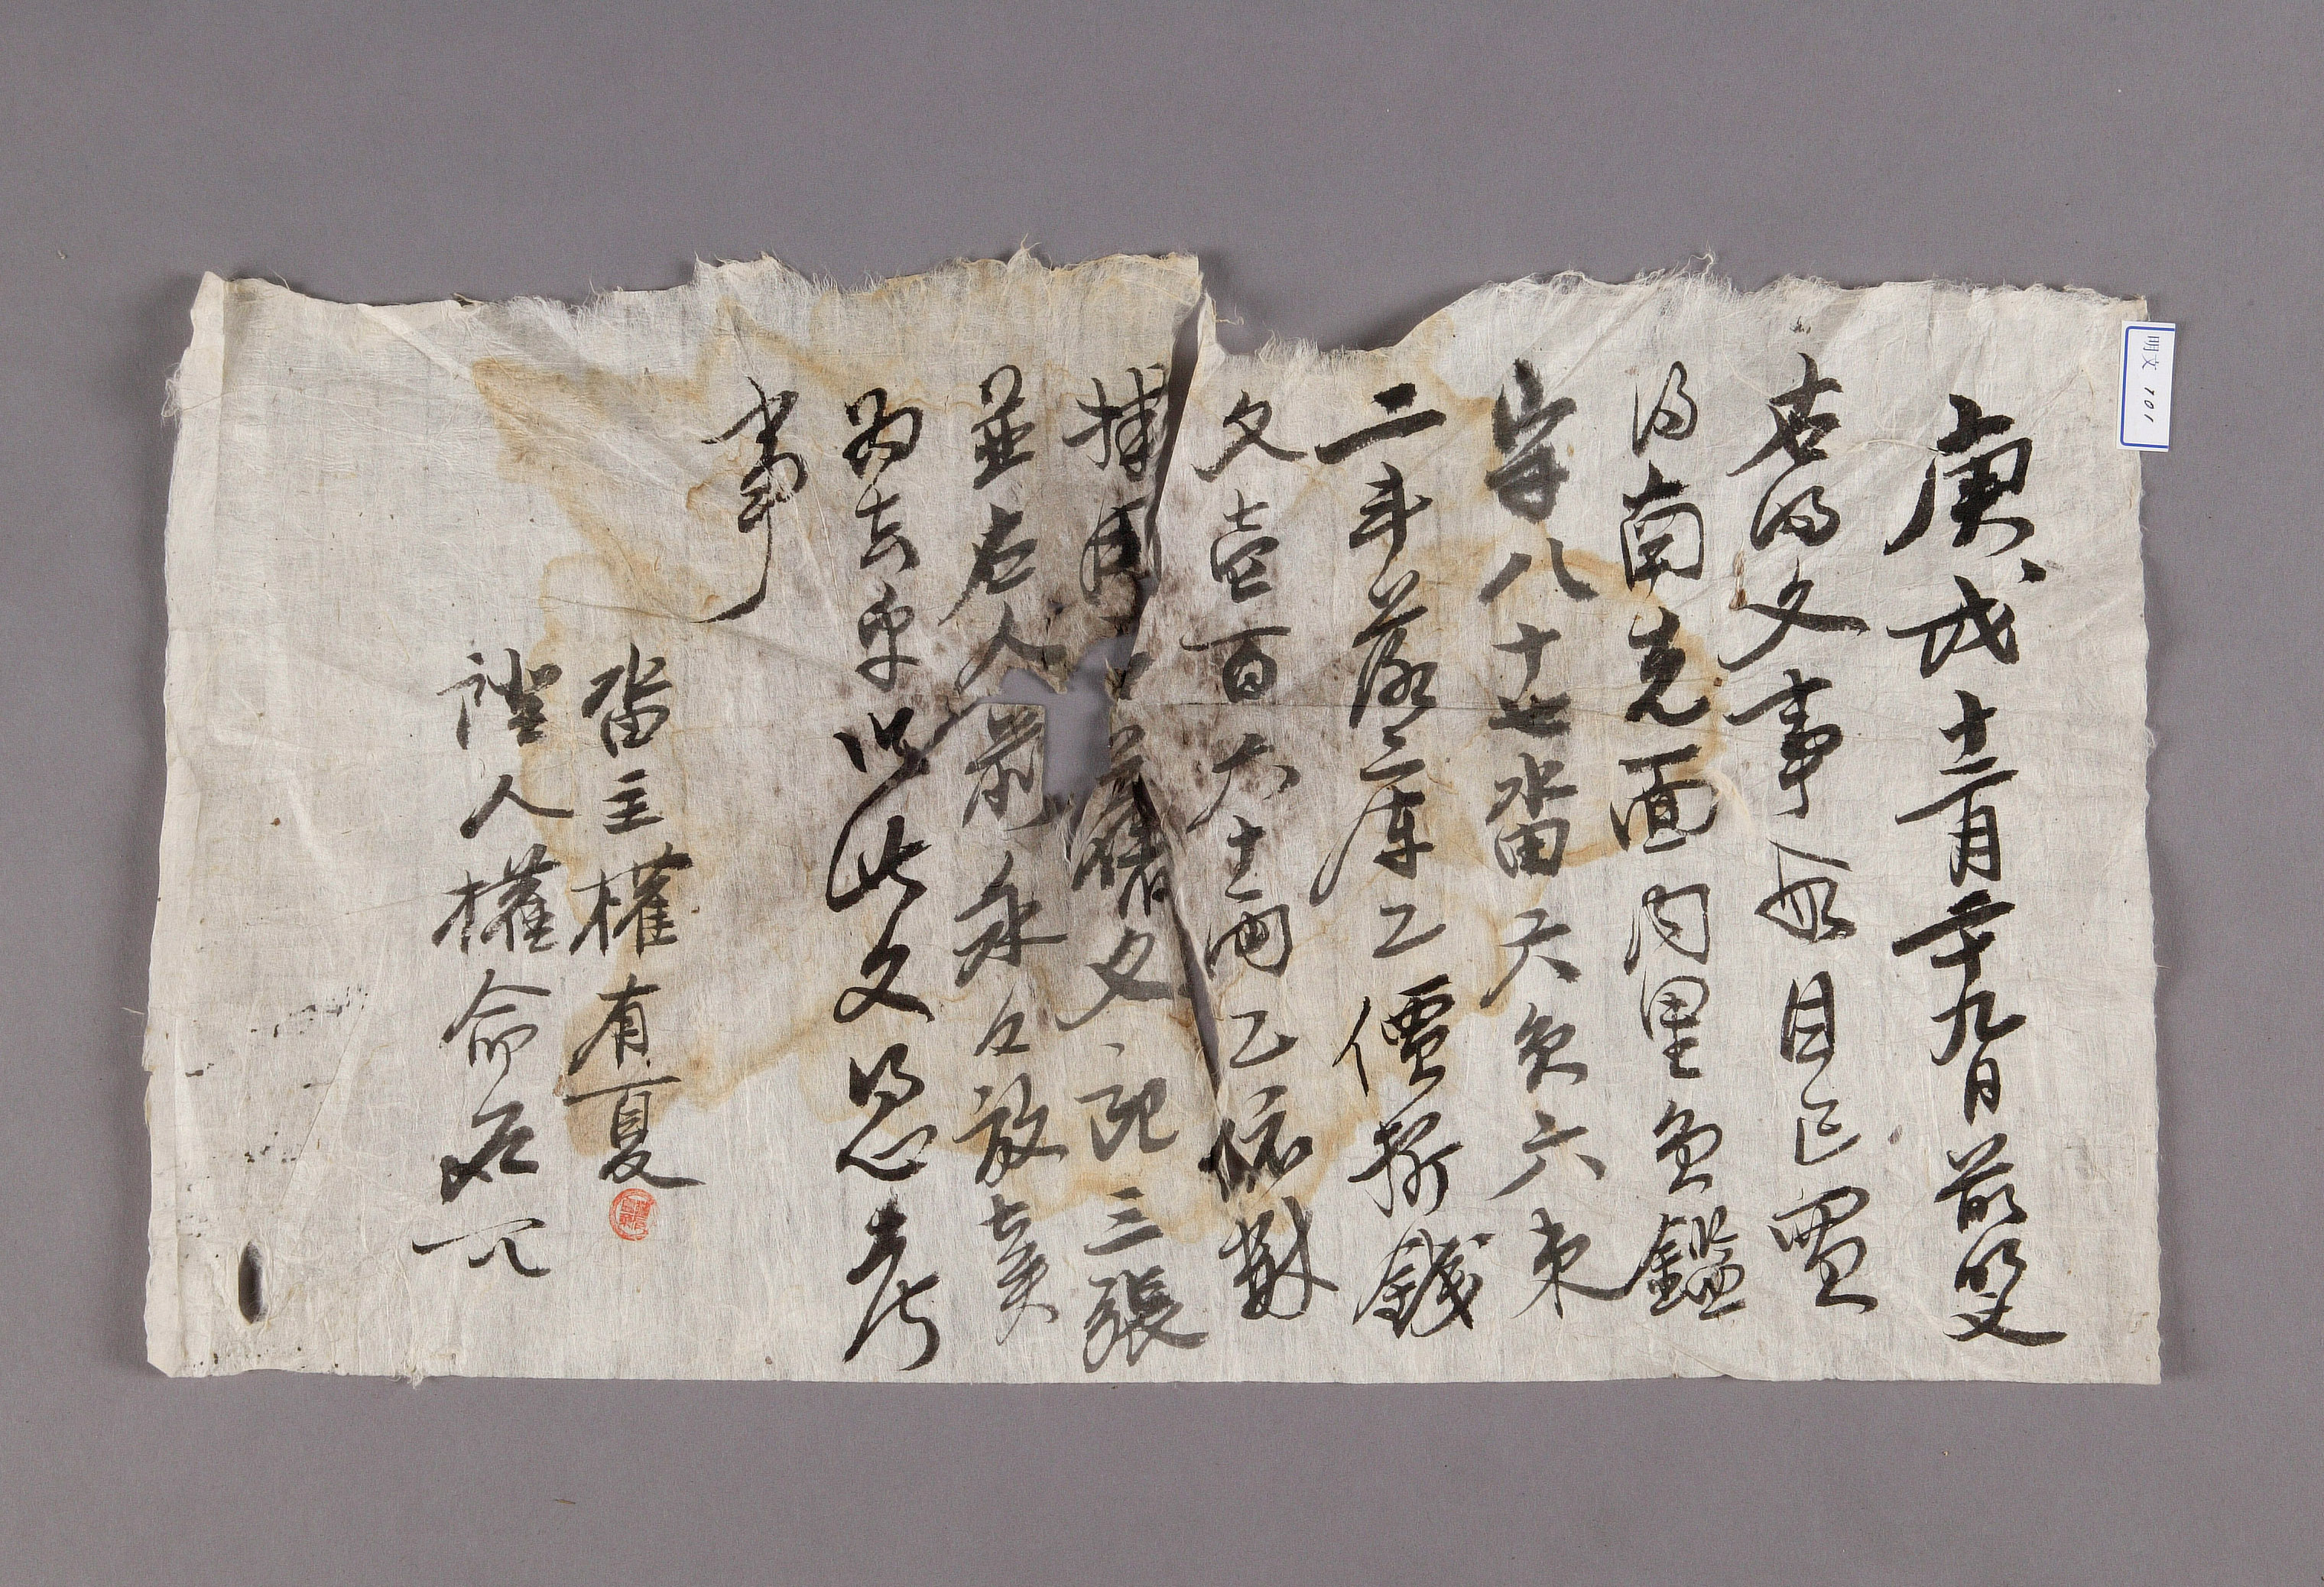 庚戌十二月二十九日前明文
右明文事段自己買
得南先面內里員鑑
字八十七畓六負六束
二斗落三庫乙價折錢
文壹百六十兩乙依數
捧用 舊文記三張
並右人前永永放賣
爲去乎以此文憑考
事
畓主權有夏
證人權命石
明文 101